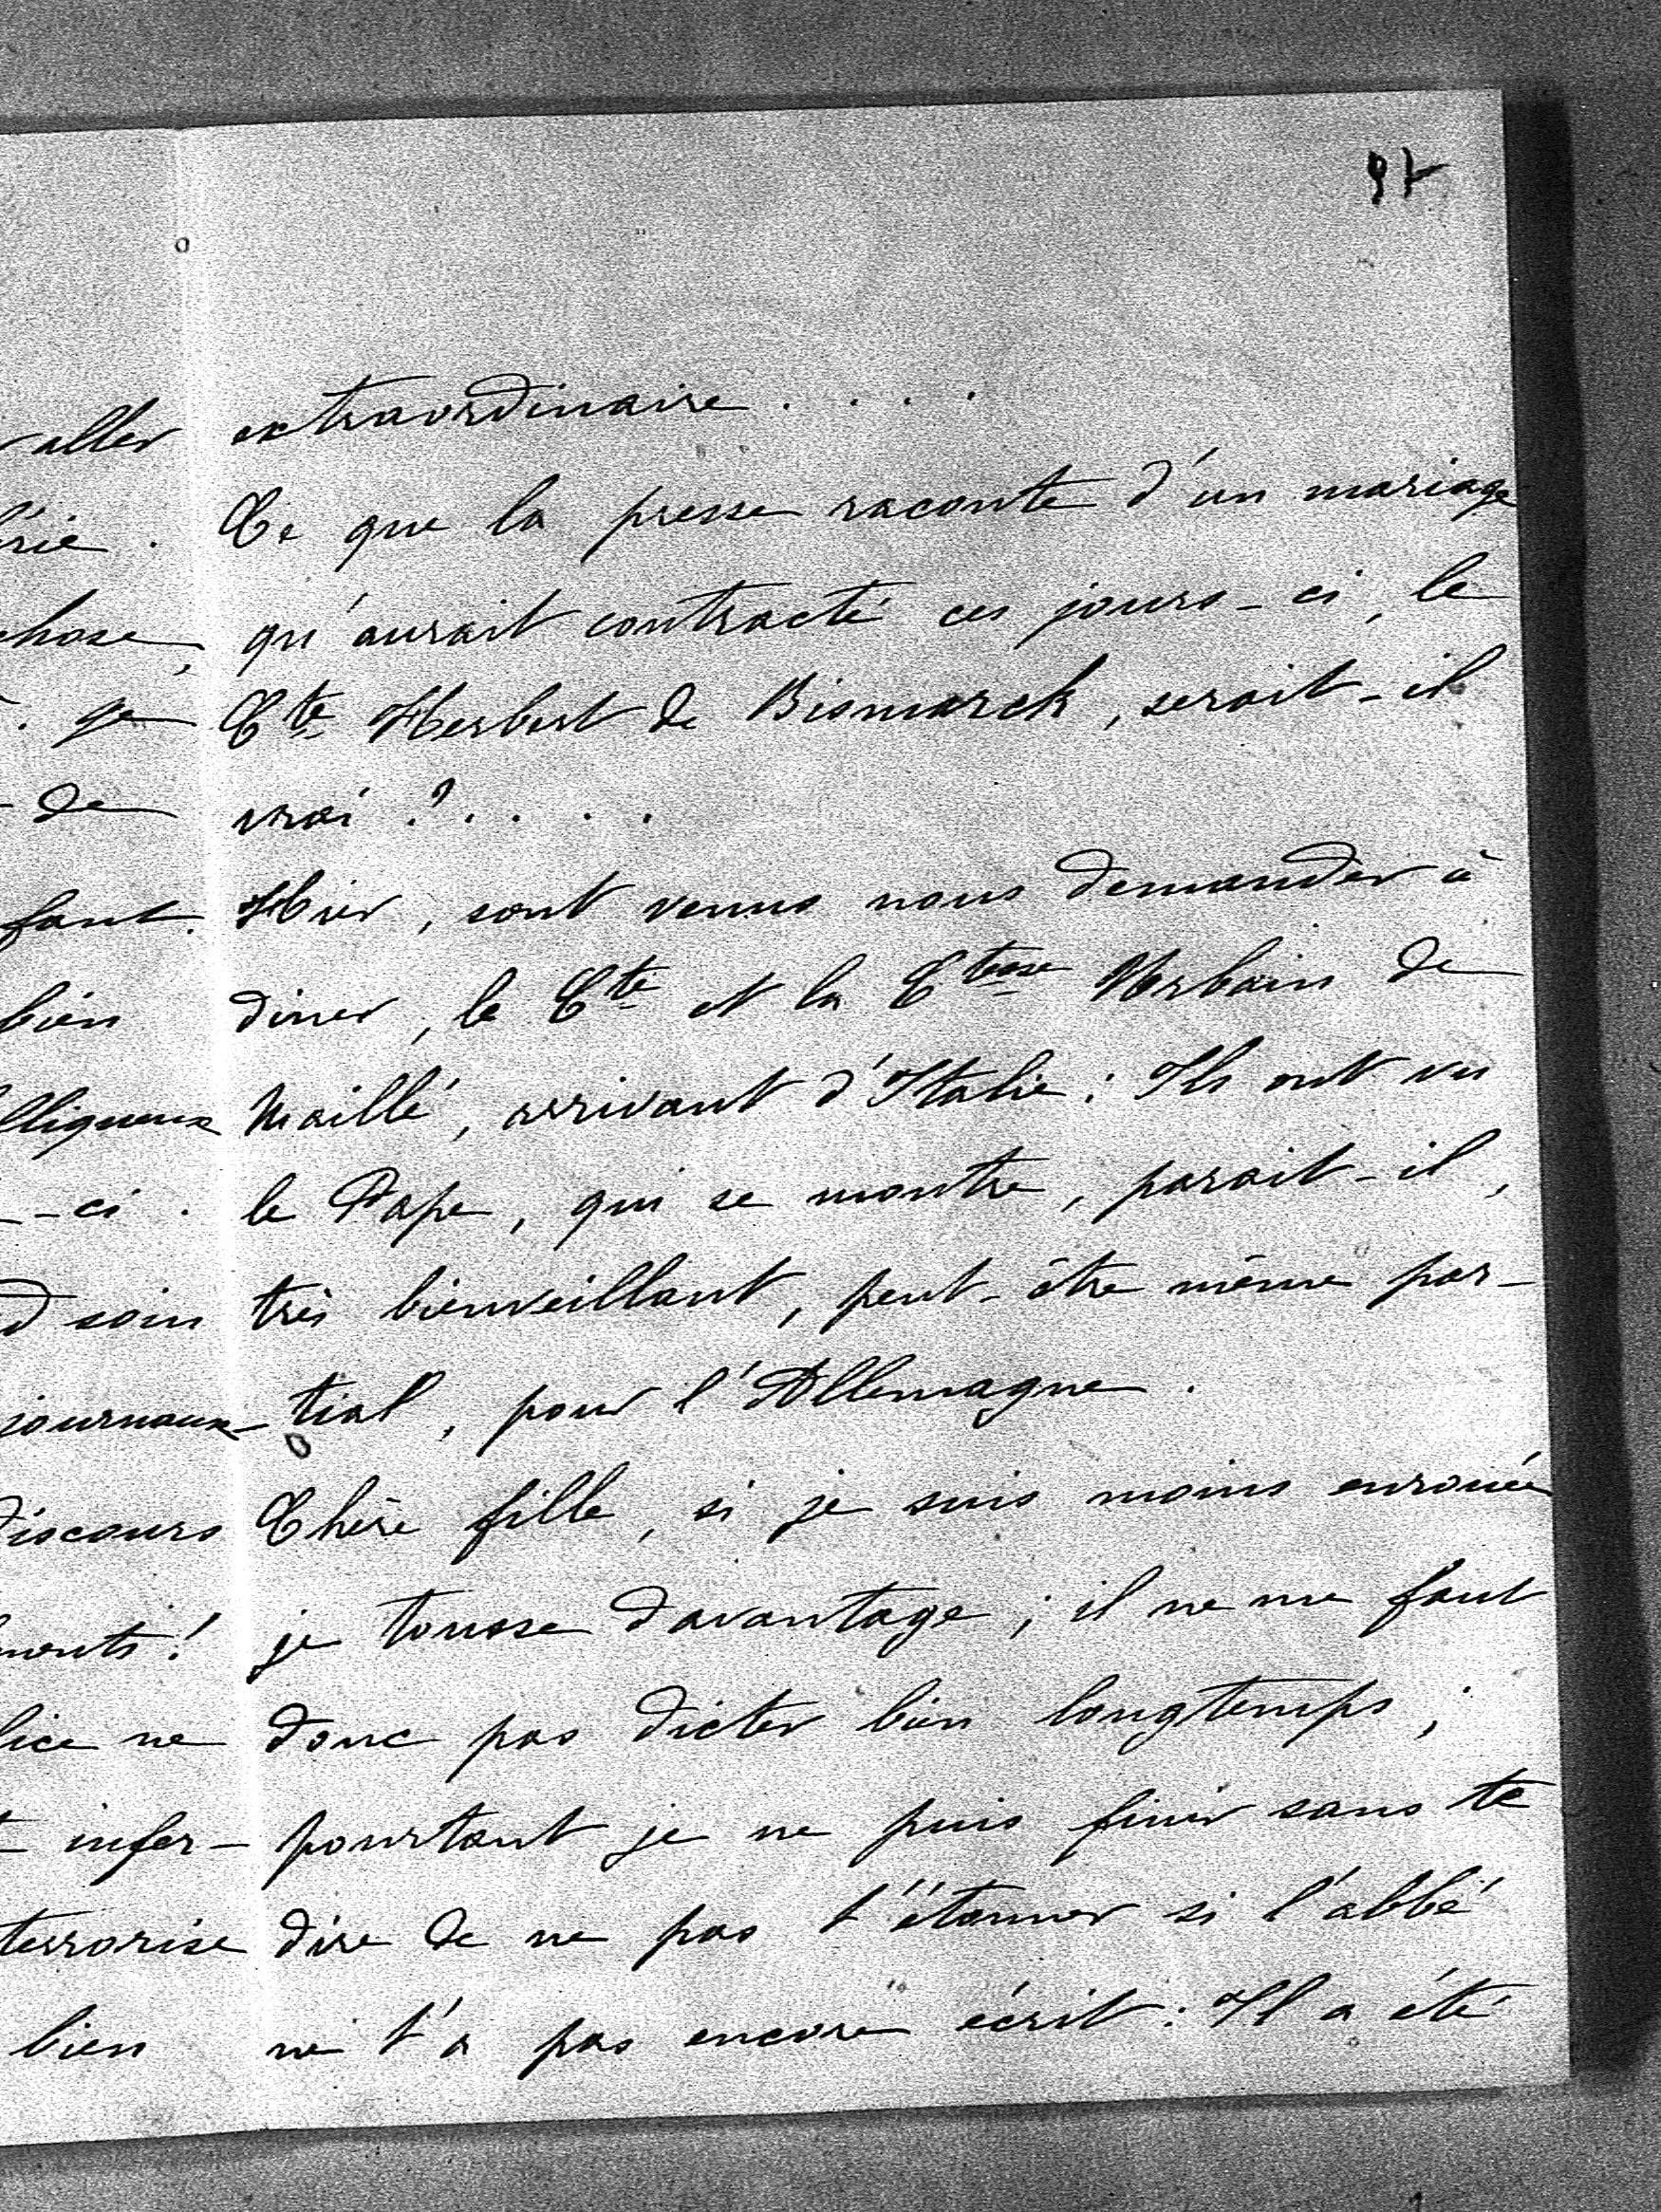 97
extraordinaire . . . .
Ce que la presse raconte d'un mariage
qu'aurait contracté ces jours-ci, le
Cte Herbert de Bismarck, serait-il
vrai ? . . . .
Hier, sont venus nous demander à
diner, le Cte et la Ctesse Urbain de
Maillé, arrivant d'Italie : Ils ont vu
le Pape, qui se montre, parait-il,
très bienveillant, peut-être même par-
tial, pour l'Allemagne.
Chère fille, si je suis moins enrouée
je tousse davantage ; il ne me faut
donc pas dicter bien longtemps ;
pourtant je ne puis finir sans te
dire de ne pas t'étonner si l'abbé
ne t'a pas encore écrit : Il a été
aller
chose,
je
de
bien
-ci.
soin
journaux
discours
ne
infer-
terrorise
bien